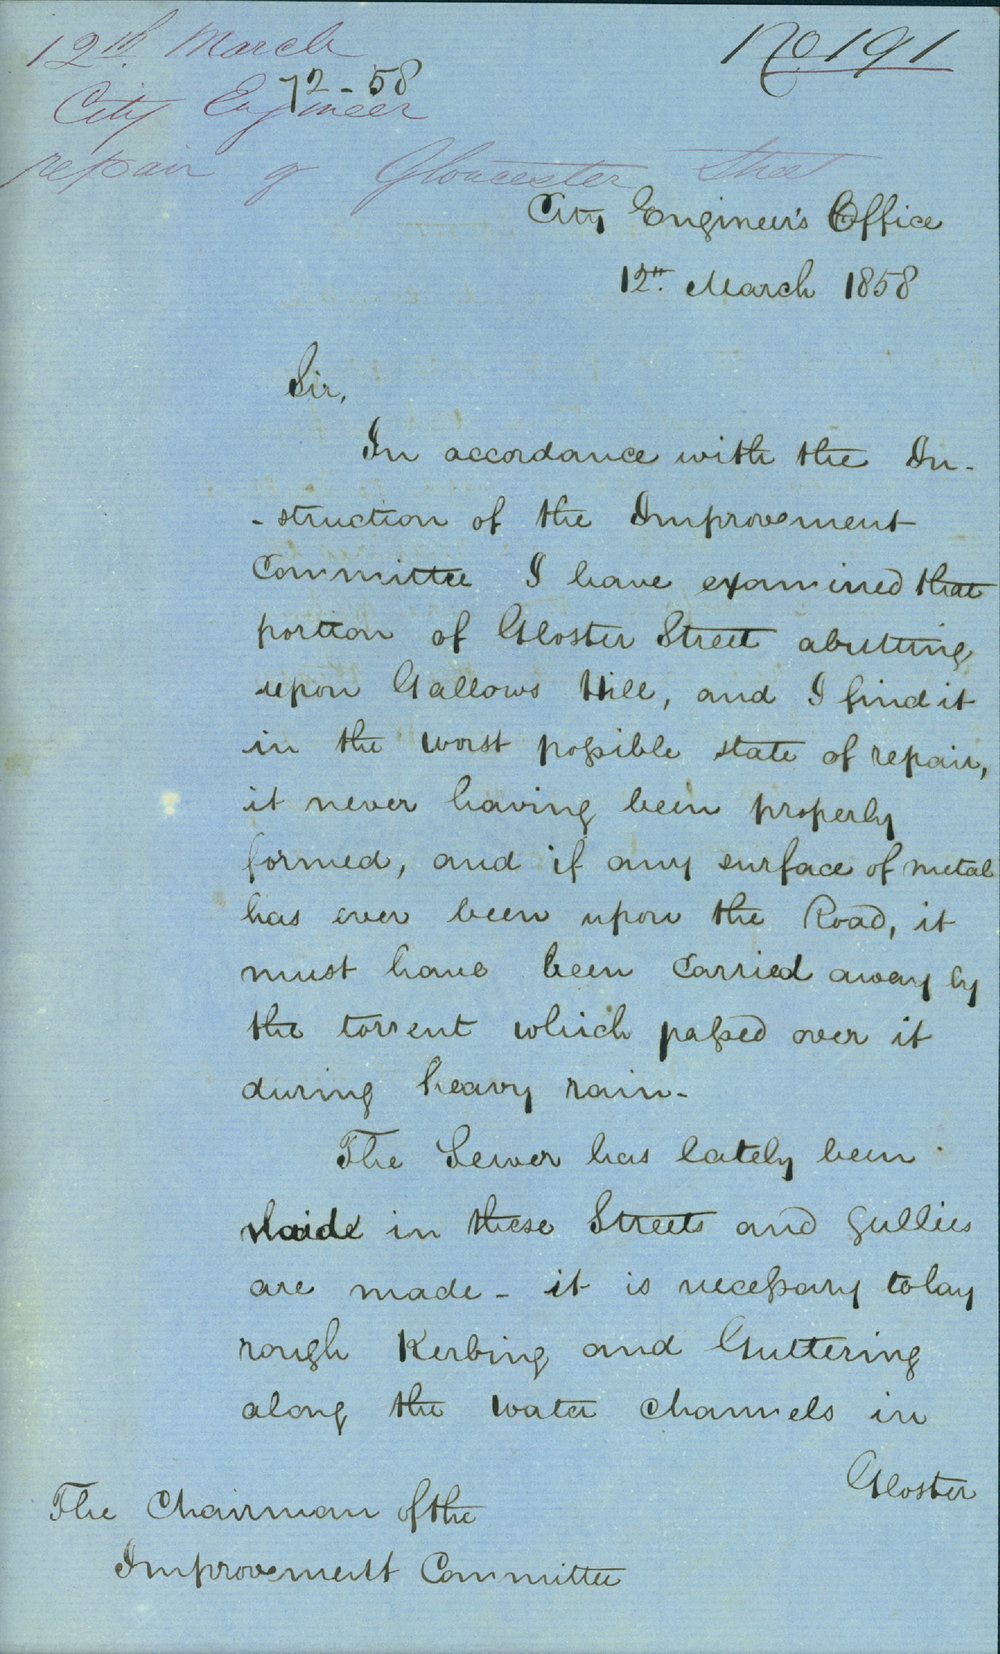 12th. March
No 191
72-58
City Engineer
repair of Gloucester Street
City Engineer's Office
12th. March 1858
Sir,
In accordance with the In-
-struction of the Improvement
Committee I have examined that
portion of Gloster Street abutting
upon Gallows Hill, and I find it
in the worst possible state of repair,
it never having been properly
formed, and if any surface of metal
has ever been upon the Road, it
must have been carried away by
the torrent which passed over it
during heavy rain-
The Sewer has lately been
laid in these Streets and Gullies
are made - it is necessary to lay
rough Kerbing and Guttering
along the water channels in
Gloster
The Chairman of the
Improvement Committee